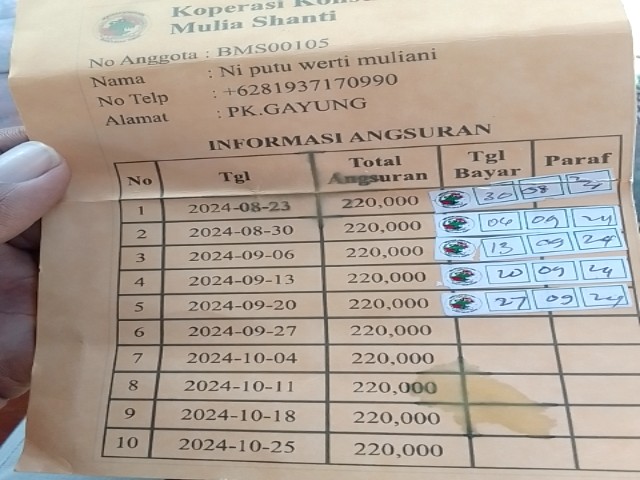 Koperasi
Mulia Shanti
No Anggota : BMS00105
Nama : Ni putu werti muliani
No Telp : +6281937170990
Alamat : PK.GAYUNG
INFORMASI ANGSURAN
No Tgl Total Angsuran Tgl Bayar Paraf
1 2024-08-23 220,000 30 08 24
2 2024-08-30 220,000 06 09 24
3 2024-09-06 220,000 13 09 24
4 2024-09-13 220,000 20 09 24
5 2024-09-20 220,000 27 09 24
6 2024-09-27 220,000
7 2024-10-04 220,000
8 2024-10-11 220,000
9 2024-10-18 220,000
10 2024-10-25 220,000